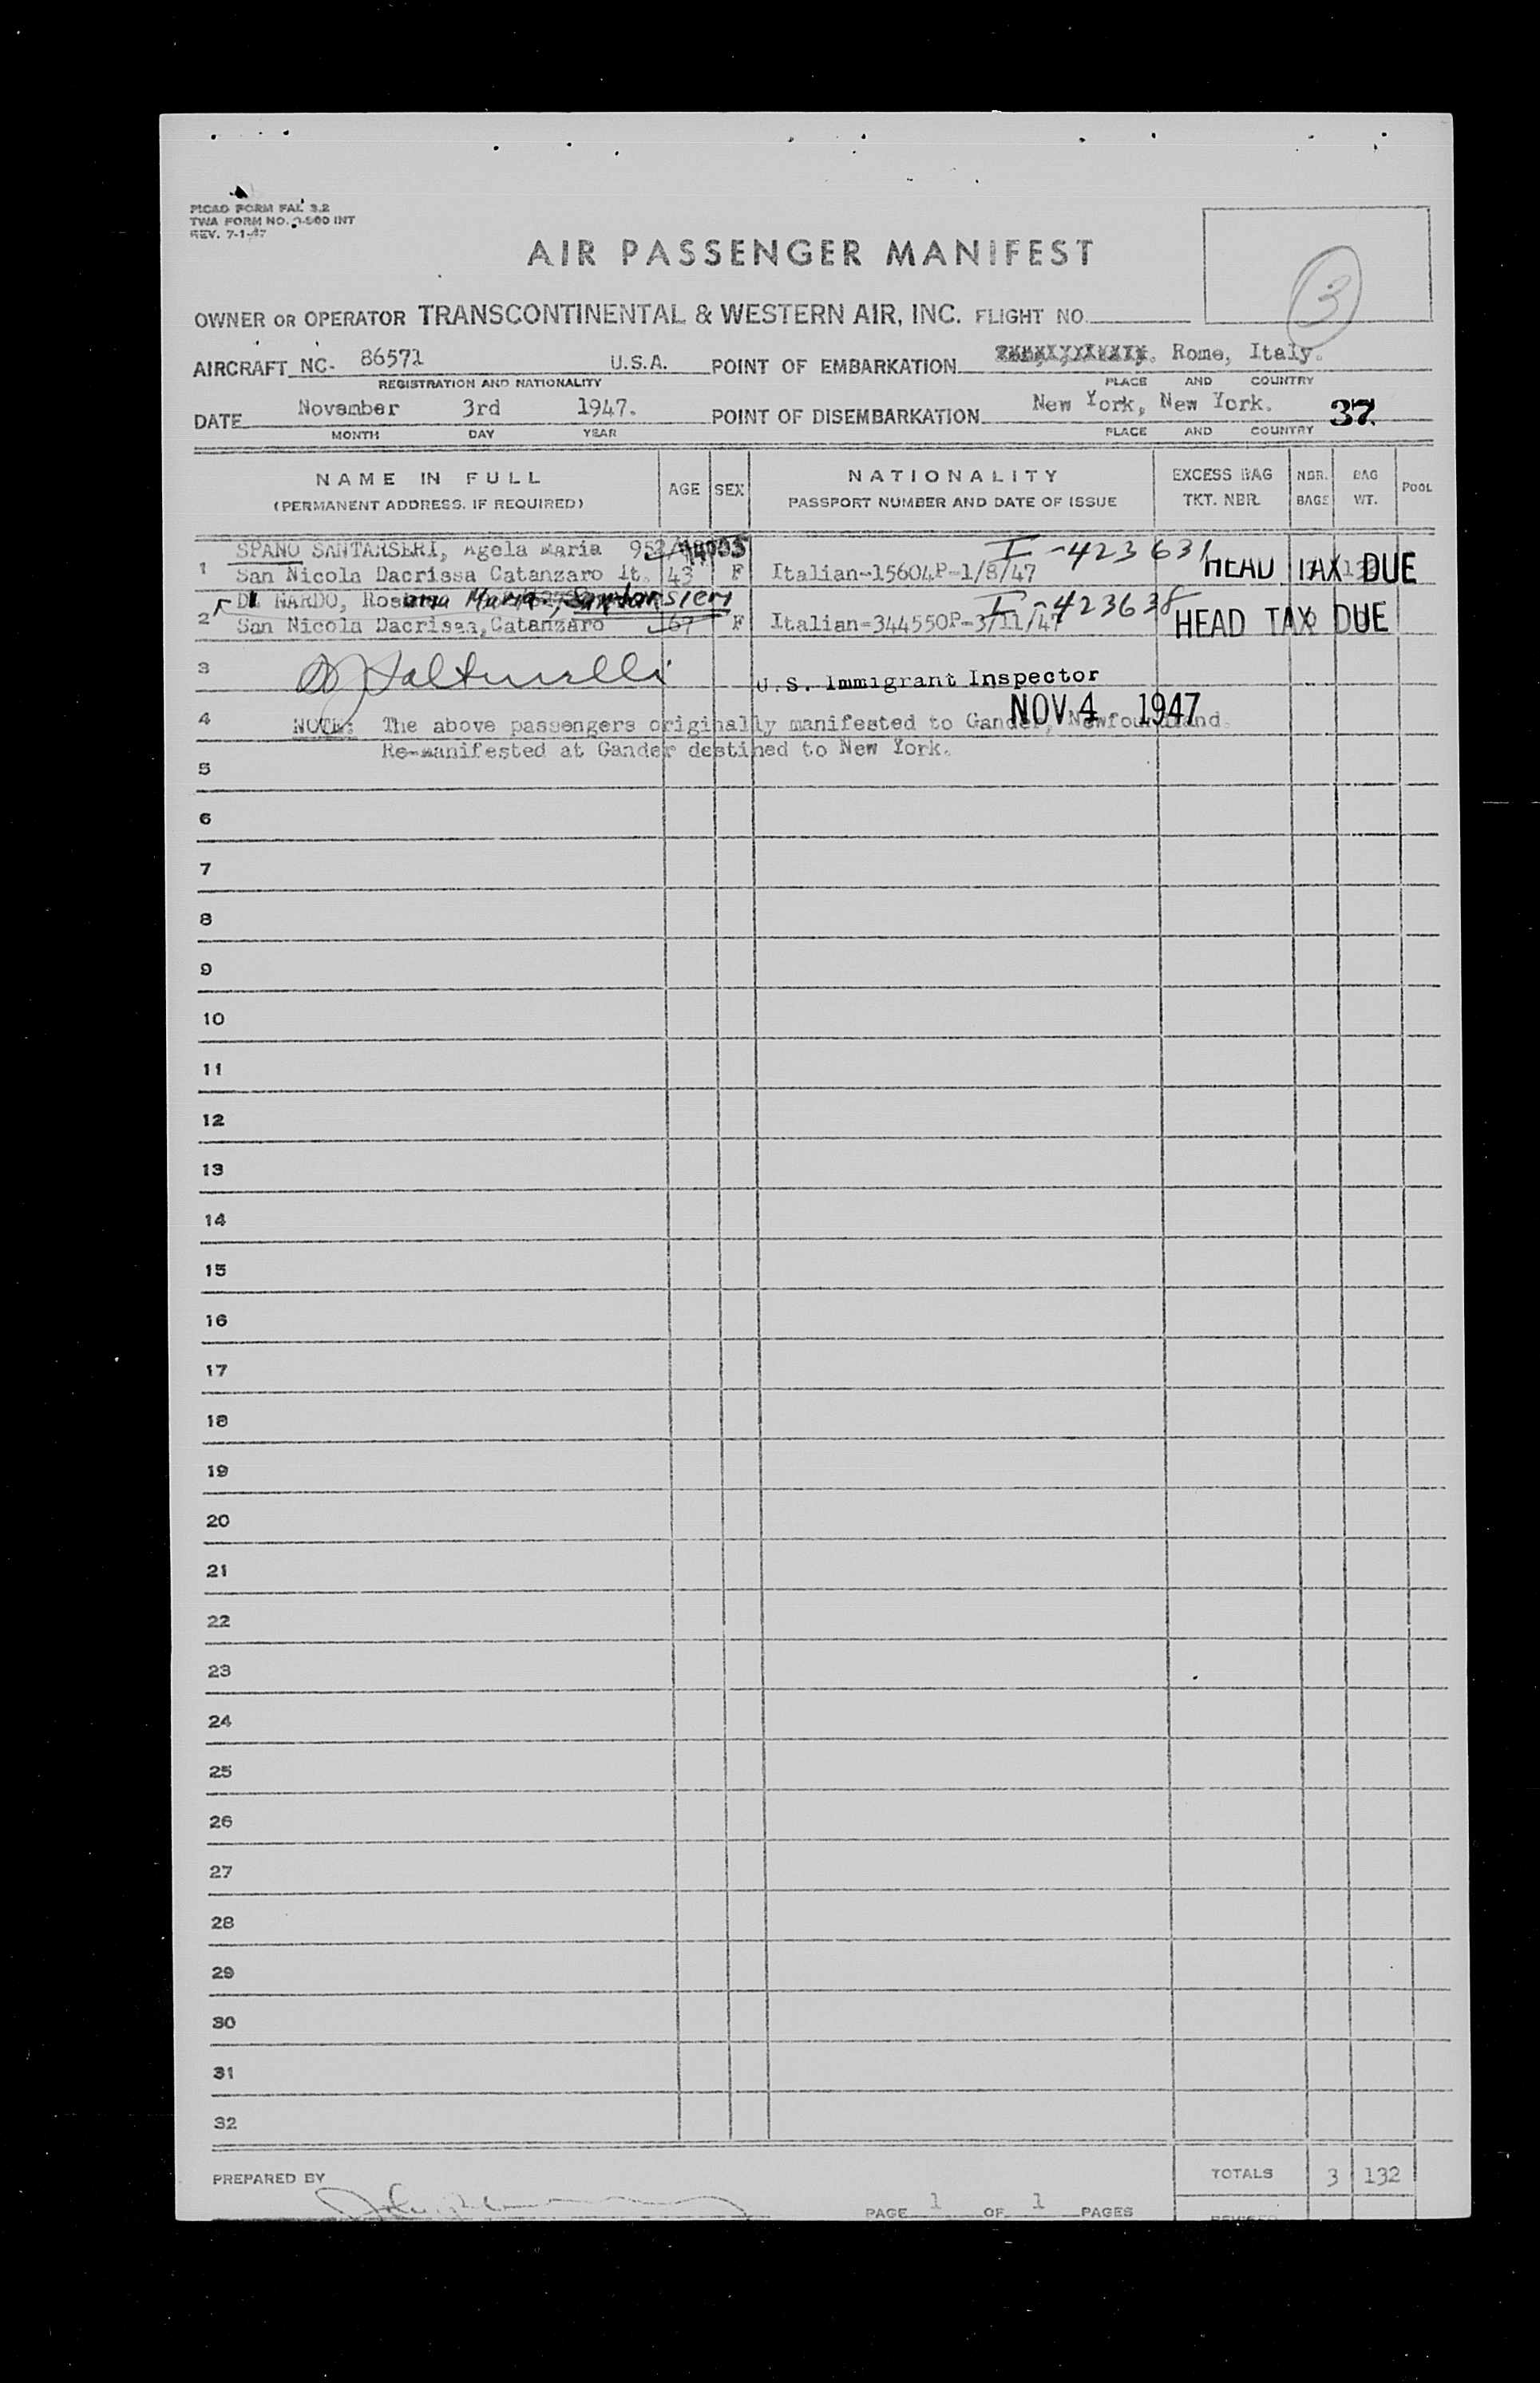 PICAO FORM FAL 3.2
TWA FORM NO. INT
REV. 7-1-47
AIR PASSENGER MANIFEST
3
OWNER OR OPERATOR TRANSCONTINENTAL & WESTERN AIR, INC. FLIGHT NO.
AIRCRAFT NC- 86571 U.S.A. POINT OF EMBARKATION Rome, Italy.
REGISTRATION AND NATIONALITY PLACE AND COUNTRY
DATE November 3rd 1947. POINT OF DISEMBARKATION New York, New York. 37
MONTH DAY YEAR PLACE AND COUNTRY
NAME IN FULL AGE SEX NATIONALITY EXCESS BAG NBR. BAG POOL
(PERMANENT ADDRESS, IF REQUIRED) PASSPORT NUMBER AND DATE OF ISSUE TKT. NBR. BAGS WT.
SPANO SANTARSERI, Agela Maria I-423631
1 San Nicola Dacrissa Catanzaro it. 43 F Italian-15604P-1/8/47 HEAD TAX DUE
DI NARDO, Rosina Maria Santarsieri I-423638
2 San Nicola Dacrissa, Catanzaro 67 F Italian-344550P-3/11/47 HEAD TAX DUE
3
U.S. Immigrant Inspector
NOV 4 1947
4 NOTE: The above passengers originally manifested to Gander, Newfoundland.
Re-manifested at Gander destined to New York.
5
6
7
8
9
10
11
12
13
14
15
16
17
18
19
20
21
22
23
24
25
26
27
28
29
30
31
32
PREPARED BY TOTALS 3 132
PAGE 1 OF 1 PAGES